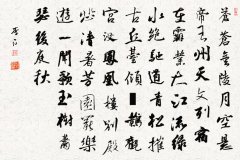 蒼蒼金陵月空懸
帝王州天文列宿
在霸業大江流綠
水絕馳道青松摧
古丘臺傾▮鵲觀
宮沒鳳凰樓別殿
悲清暑芳園罷樂
遊一聞歌玉樹蕭
瑟後庭秋
李白